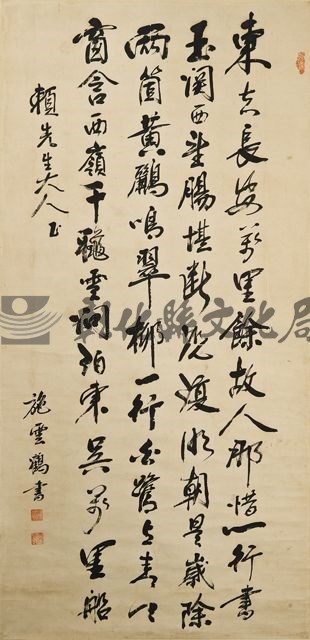 東去長安萬里餘故人那惜一行書
玉關西望腸堪斷況復明朝是歲除
兩箇黃鸝鳴翠柳一行白鷺上青天
窗含西嶺千秋雪門泊東吳萬里船
賴先生大人正
施雲鶴書
彰化縣文化局